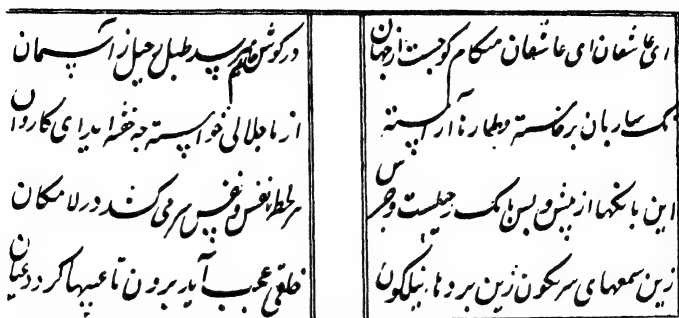 ای عاشقان ای عاشقان هنگام کوچست از جهان
در گوش جانم میرسد طبل رحیل از آسمان
نک ساربان برخاسته قطارها آراسته
از ما حلالی خواسته چه خفته‌اید ای کاروان
این بانگها از پیش و پس بانگ رحیلست و جرس
هر لحظه نفس و نفس سر می کشد در لامکان
زین شمعهای سرنگون زین پردهای نیلگون
خلقی عجب آید برون تا غیبها گردد عیان